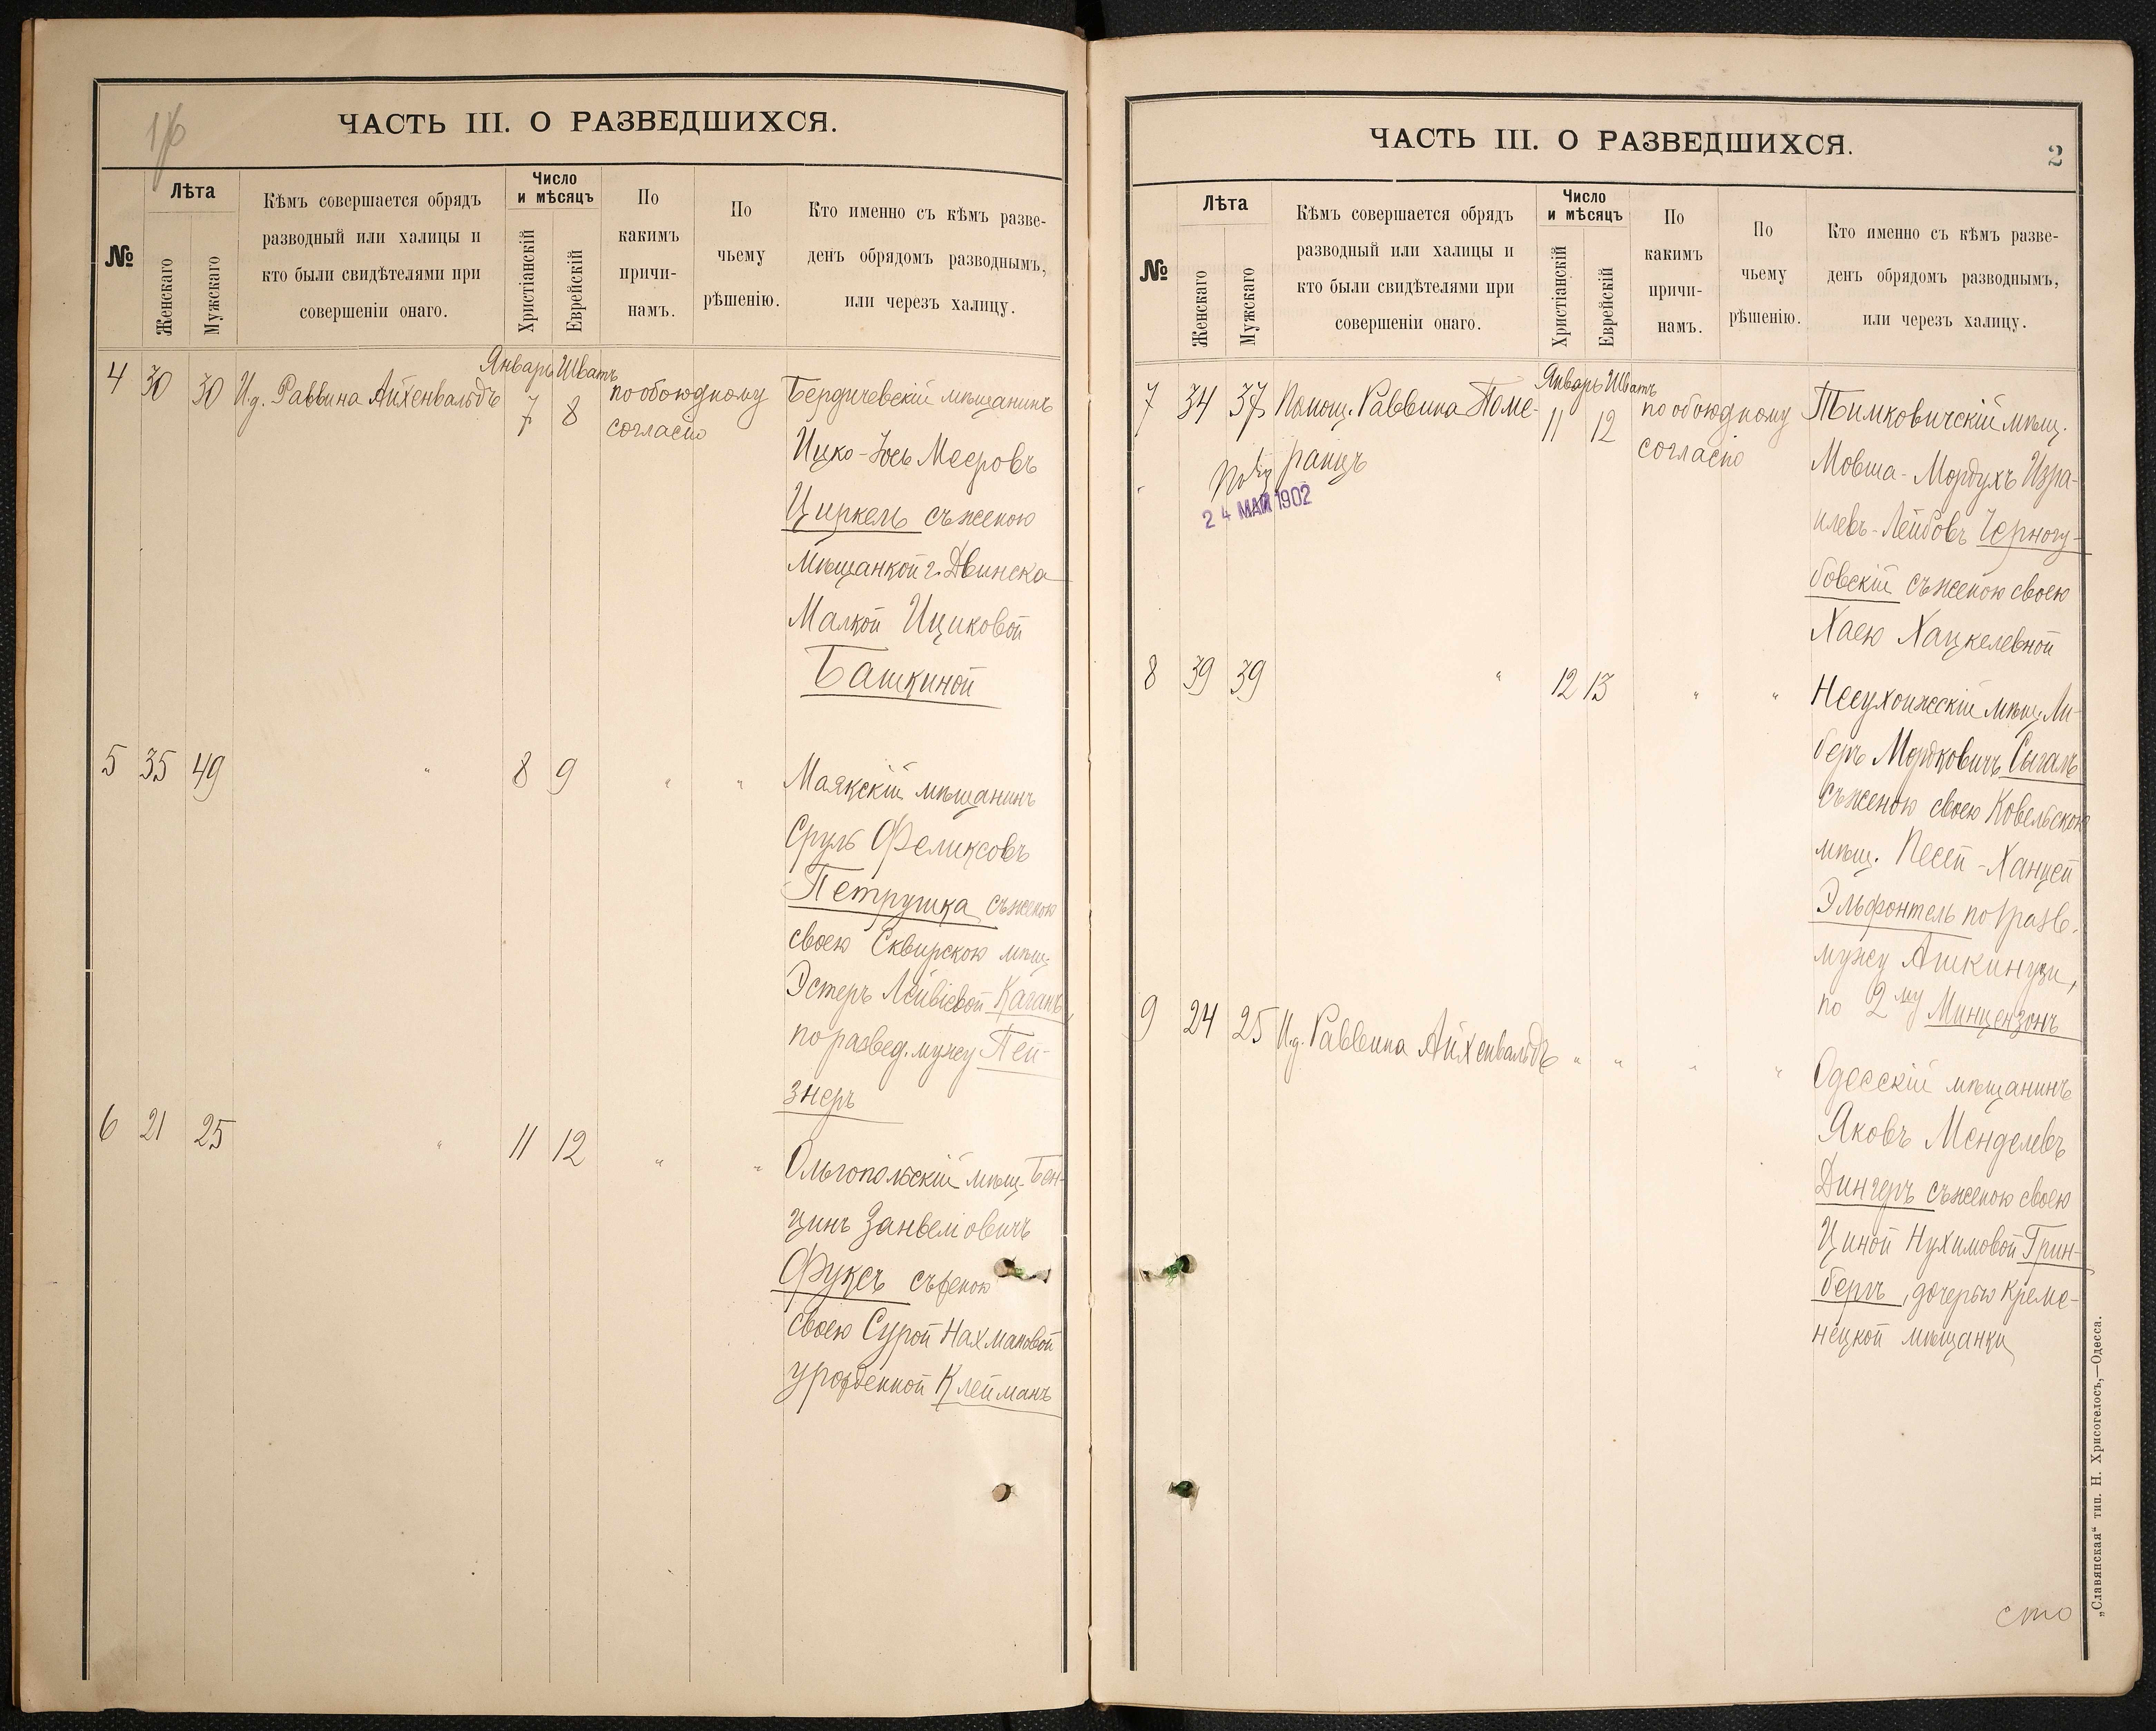 ЧАСТЬ III. О РАЗВЕДШИХСЯ.
№
Лѣта
Женскаго
Мужскаго
Кѣмъ совершается обрядъ
разводный или халицы и
кто были свидѣтелями при
совершеніи онаго.
Число
и мѣсяцъ
Христіанскій
Еврейскій
По
какимъ
причи-
намъ.
По
чьему
рѣшенію.
Кто именно съ кѣмъ разве-
денъ обрядомъ разводнымъ,
или черезъ халицу.
Январь Шватъ
4 30 30 И.д. Раввина Айхенвальдъ 7 8 по обоюдному Бердичевскій мѣщанинъ
согласію
Ицко-Іось Мееровъ
Циркель съ женою
мѣщанкой г. Двинска
Малкой Ициковой
Башкиной
5 35 49 " 8 9 " " Маякскій мѣщанинъ
Сруль Феликсовъ
Петрушка съ женою
своею Сквирскою мѣщ.
Эстеръ Лейвіевой Каганъ,
по развед. мужу Пей-
знеръ
6 21 25 " 11 12 " " Ольгопольскій мѣщ. Бен-
ционъ Занвеліовичъ
Фуксъ съ женою
своею Сурой Нахмановой
урожденной Клейманъ
ЧАСТЬ III. О РАЗВЕДШИХСЯ.
2
№
Лѣта
Женскаго
Мужскаго
Кѣмъ совершается обрядъ
разводный или халицы и
кто были свидѣтелями при
совершеніи онаго.
Число
и мѣсяцъ
Христіанскій
Еврейскій
По
какимъ
причи-
намъ.
По
чьему
рѣшенію.
Кто именно съ кѣмъ разве-
денъ обрядомъ разводнымъ,
или черезъ халицу.
Январь Шватъ
7 34 37 Помощ. Раввина Поме- 11 12 по обоюдному Тимковичскій мѣщ.
ранцъ
согласію
24 МАЙ 1902
Мовша-Мордухъ Изра-
илевъ-Лейбовъ Черногу-
бовскій съ женою своею
Хаею Хацкелевной
8 39 39 " 12 13 " " Несухоижскій мѣщ. Ли-
беръ Мордковичъ Сыгалъ
съ женою своею Ковельскою
мѣщ. Песей-Ханцей
Эльфонтель по 1 разв.
мужу Ашкинузи,
по 2му Минцензонъ
9 24 25 И.д. Раввина Айхенвальдъ " " " " Одесскій мѣщанинъ
Яковъ Менделевъ
Дингеръ съ женою своею
Циной Нухимовой Грин-
бергъ, дочерью Креме-
нецкой мѣщанки
сто
„Славянская“ тип. Н. Хрисогелосъ,—Одесса.